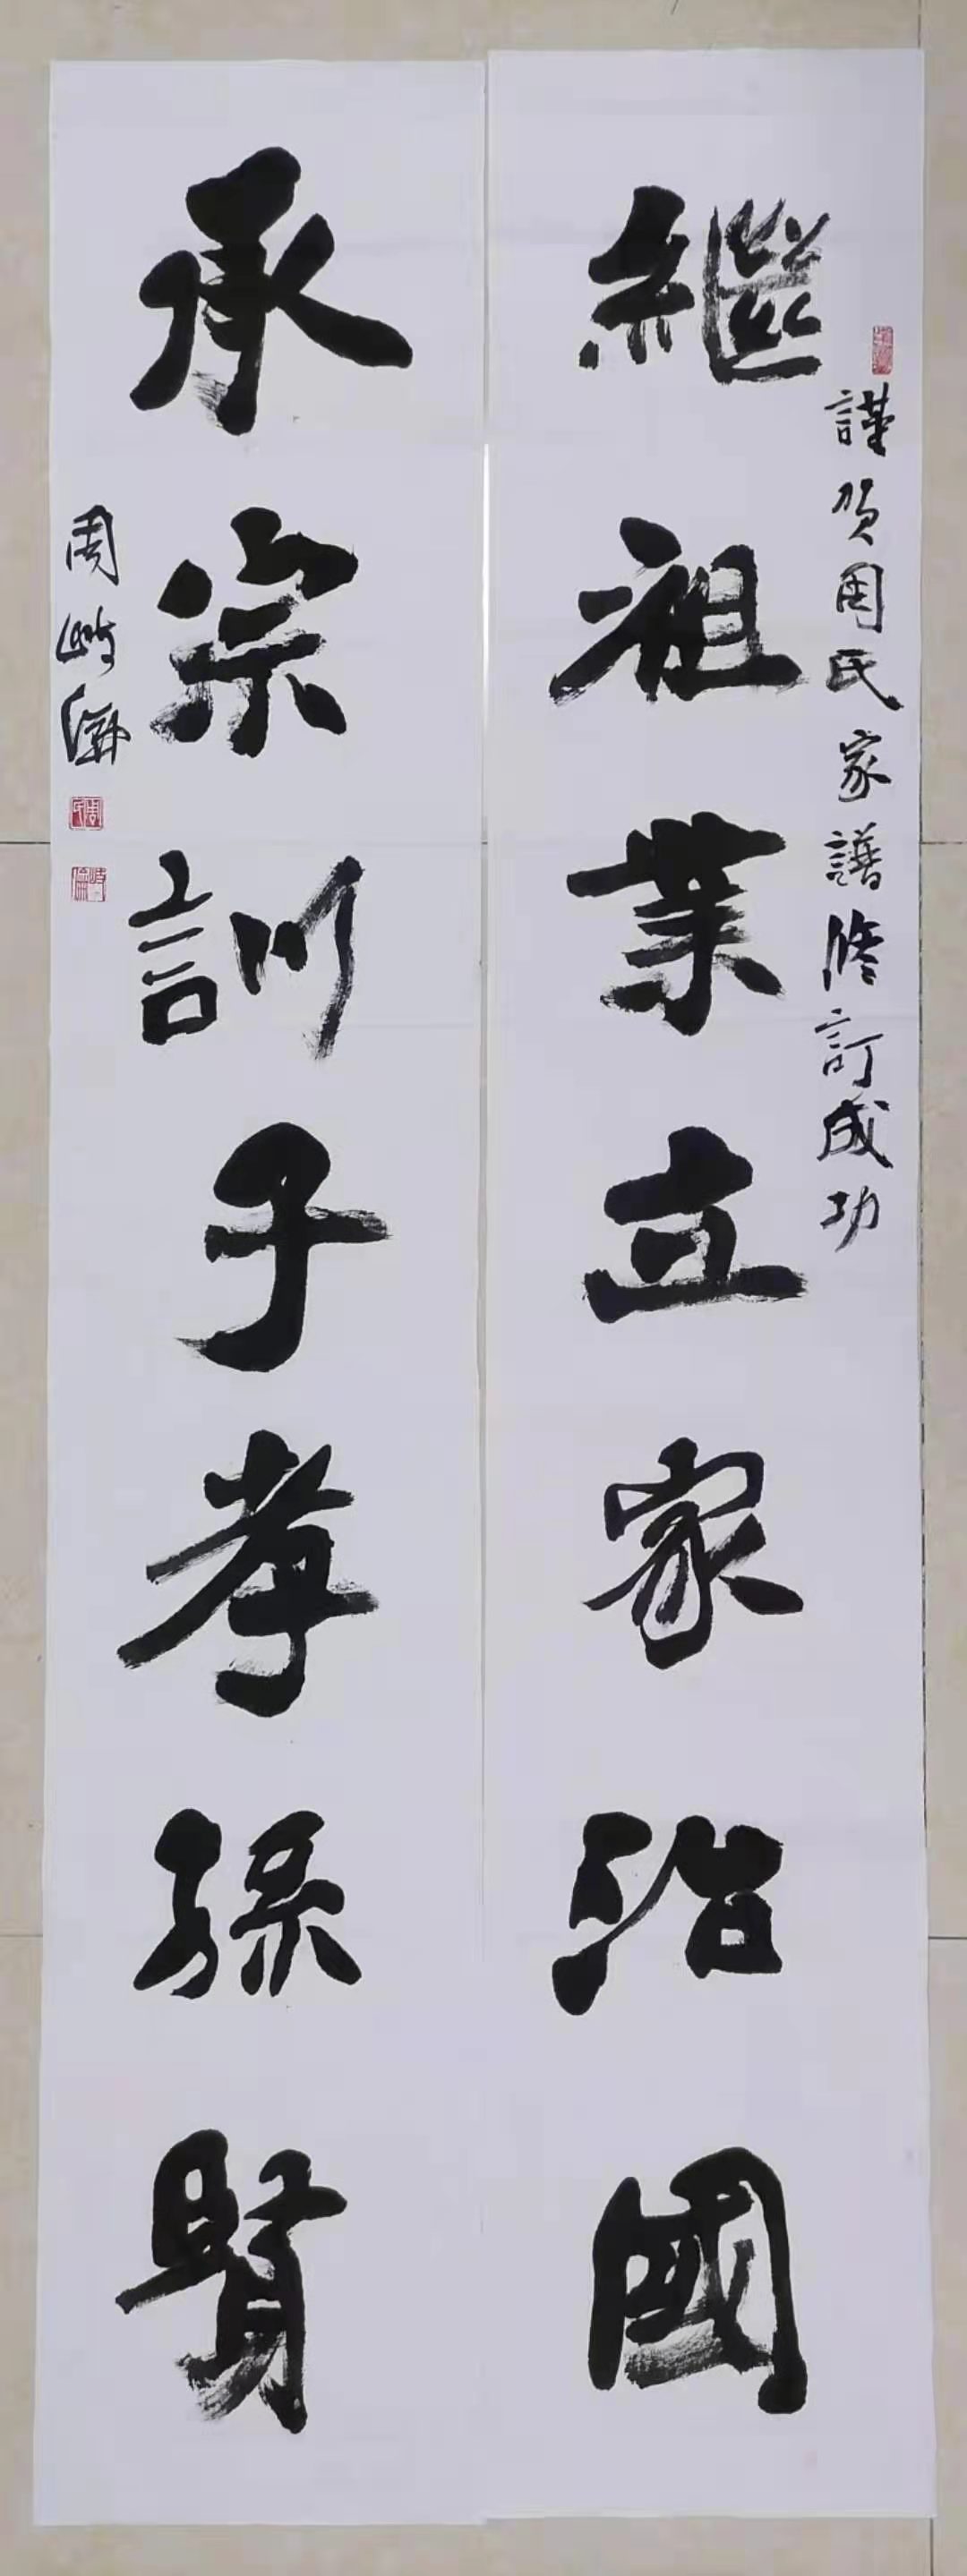 謹賀周氏家譜修訂成功
繼祖業立家治國
承宗訓子孝孫賢
周
周氏